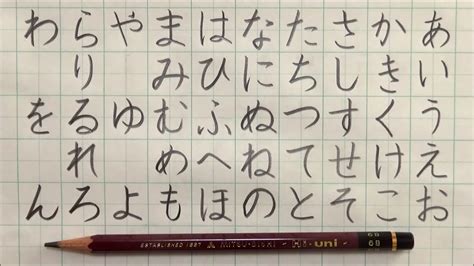 あいうえお
かきくけこ
さしすせそ
たちつてと
なにぬねの
はひふへほ
まみむめも
やゆよ
らりるれろ
わをん
ESTABLISHED 1887 MITSU-BISHI Hi-uni 6B
6B